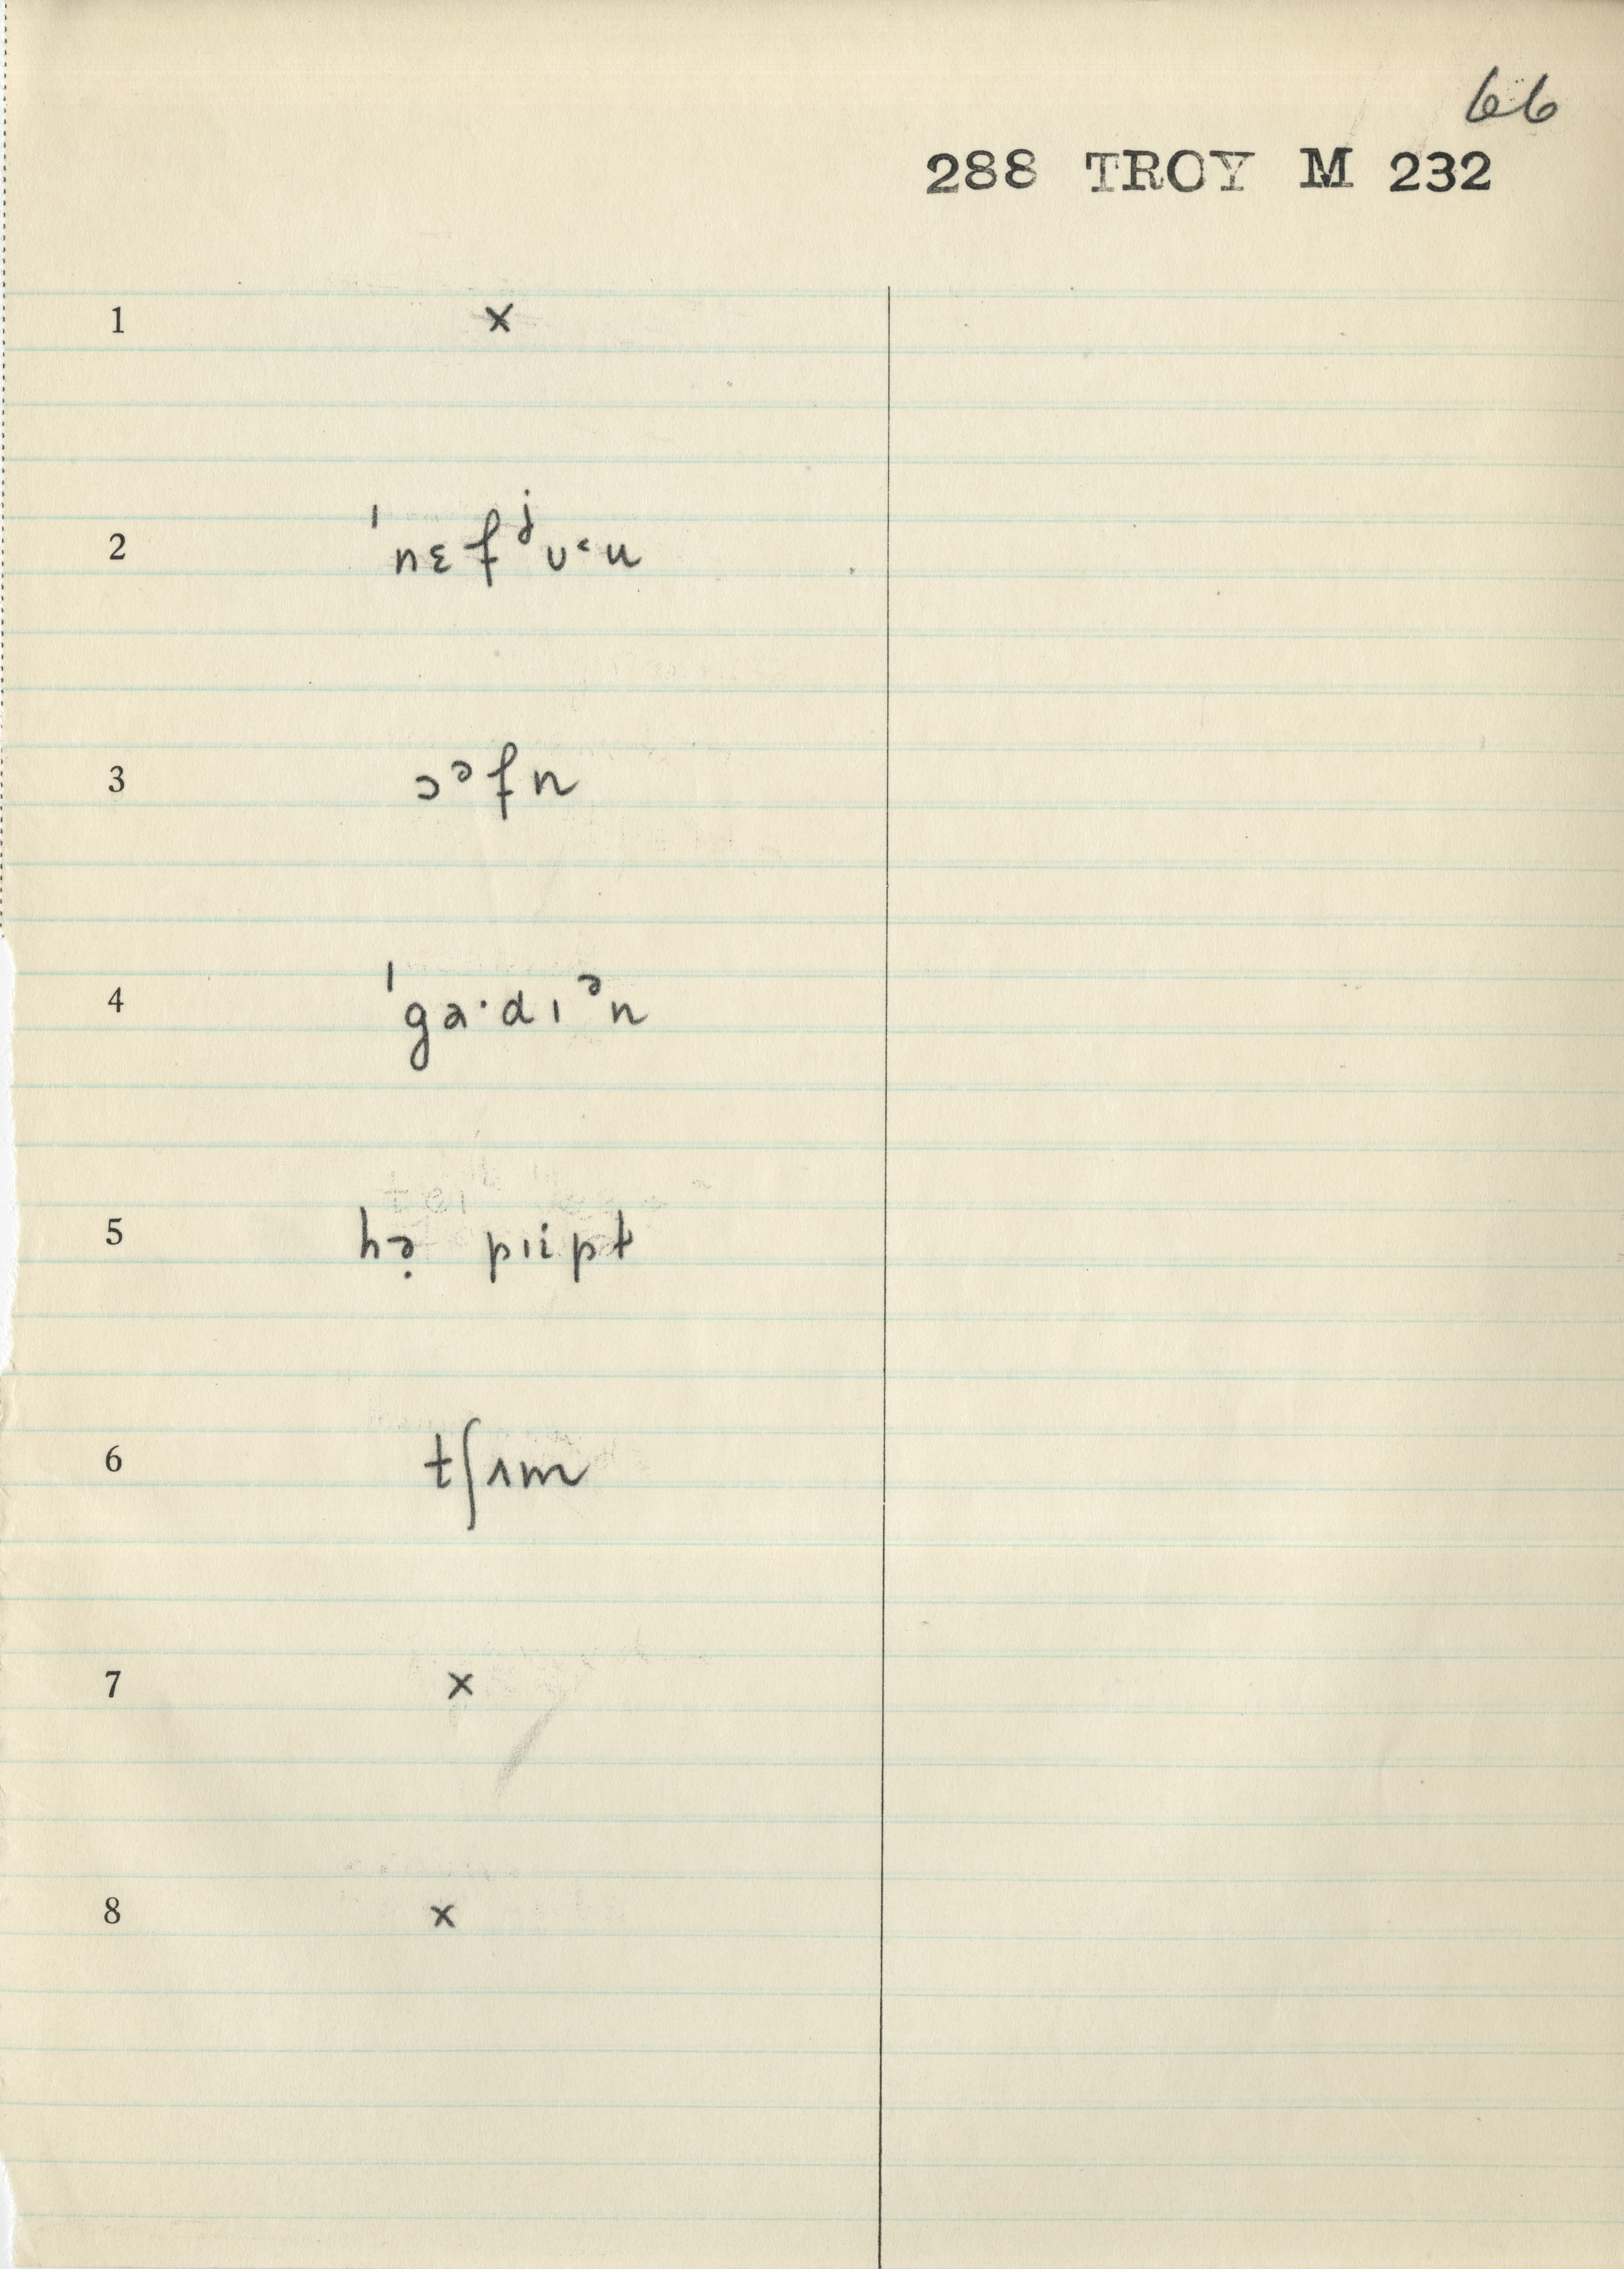 66
288 TROY M 232
1 ×
2 ˈnɛfʲʊ˂u
3 ɔᵊfn
4 ˈga·dɪᵊn
5 hə̣ pɪipt
6 tʃʌm
7 ×
8 ×